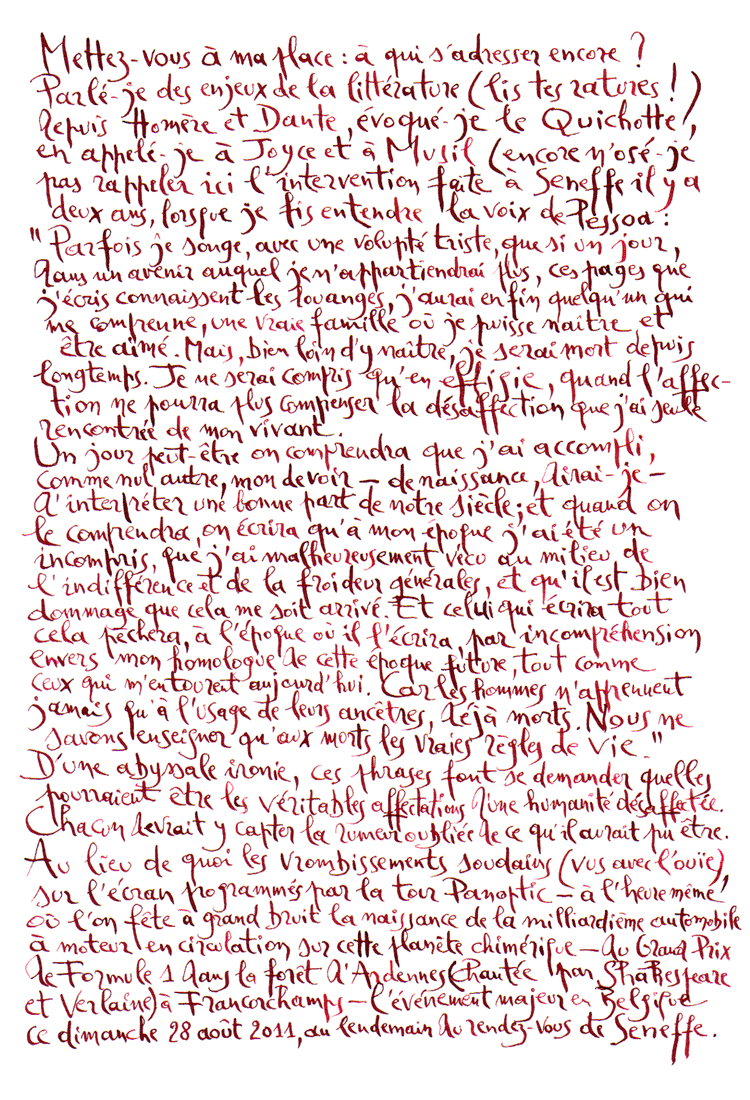 Mettez-vous à ma place : à qui s'adresser encore ?
Parlé-je des enjeux de la littérature (lis tes ratures !)
depuis Homère et Dante, évoqué-je le Quichotte,
en appelé-je à Joyce et à Musil (encore n'osé-je
pas rappeler ici l'intervention faite à Seneffe il y a
deux ans, lorsque je fis entendre la voix de Pessoa :
"Parfois je songe, avec une volupté triste, que si un jour,
dans un avenir auquel je n'appartiendrai plus, ces pages que
j'écris connaissent les louanges, j'aurai enfin quelqu'un qui
me comprenne, une vraie famille où je puisse naître et
être aimé. Mais, bien loin d'y naître, je serai mort depuis
longtemps. Je ne serai compris qu'en effigie, quand l'affec-
tion ne pourra plus compenser la désaffection que j'ai seule
rencontrée de mon vivant.
Un jour peut-être on comprendra que j'ai accompli,
comme nul autre, mon devoir – de naissance, dirai-je –
d'interpréter une bonne part de notre siècle ; et quand on
le comprendra, on écrira qu'à mon époque j'ai été un
incompris, que j'ai malheureusement vécu au milieu de
l'indifférence et de la froideur générales, et qu'il est bien
dommage que cela me soit arrivé. Et celui qui écrira tout
cela péchera, à l'époque où il l'écrira, par incompréhension
envers mon homologue de cette époque future, tout comme
ceux qui m'entourent aujourd'hui. Car les hommes n'apprennent
jamais qu'à l'usage de leurs ancêtres, déjà morts. Nous ne
savons enseigner qu'aux morts les vraies règles de vie."
D'une abyssale ironie, ces phrases font se demander quelles
pourraient être les véritables affectations d'une humanité désaffectée.
Chacun devrait y capter la rumeur oubliée de ce qu'il aurait pu être.
Au lieu de quoi les vrombissements soudains (vus avec l'ouïe),
sur l'écran programmés par la tour Panoptic – à l'heure même
où l'on fête à grand bruit la naissance de la milliardième automobile
à moteur en circulation sur cette planète chimérique – du Grand Prix
de Formule 1 dans la forêt d'Ardennes (chantée par Shakespeare
et Verlaine) à Francorchamps – l'événement majeur en Belgique
ce dimanche 28 août 2011, au lendemain du rendez-vous de Seneffe.